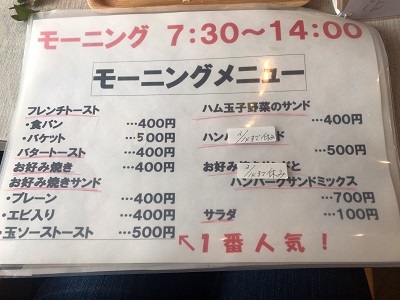 モーニング 7:30〜14:00
モーニングメニュー
フレンチトースト
・食パン …400円
・バケット …500円
バタートースト …400円
お好み焼き …400円
お好み焼きサンド
・プレーン …400円
・エビ入り …400円
・玉ソーストースト …500円
ハム玉子野菜のサンド
…400円
ハン
…500円
お好み
ハンバーグサンドミックス
…700円
サラダ …100円
↖1番人気！